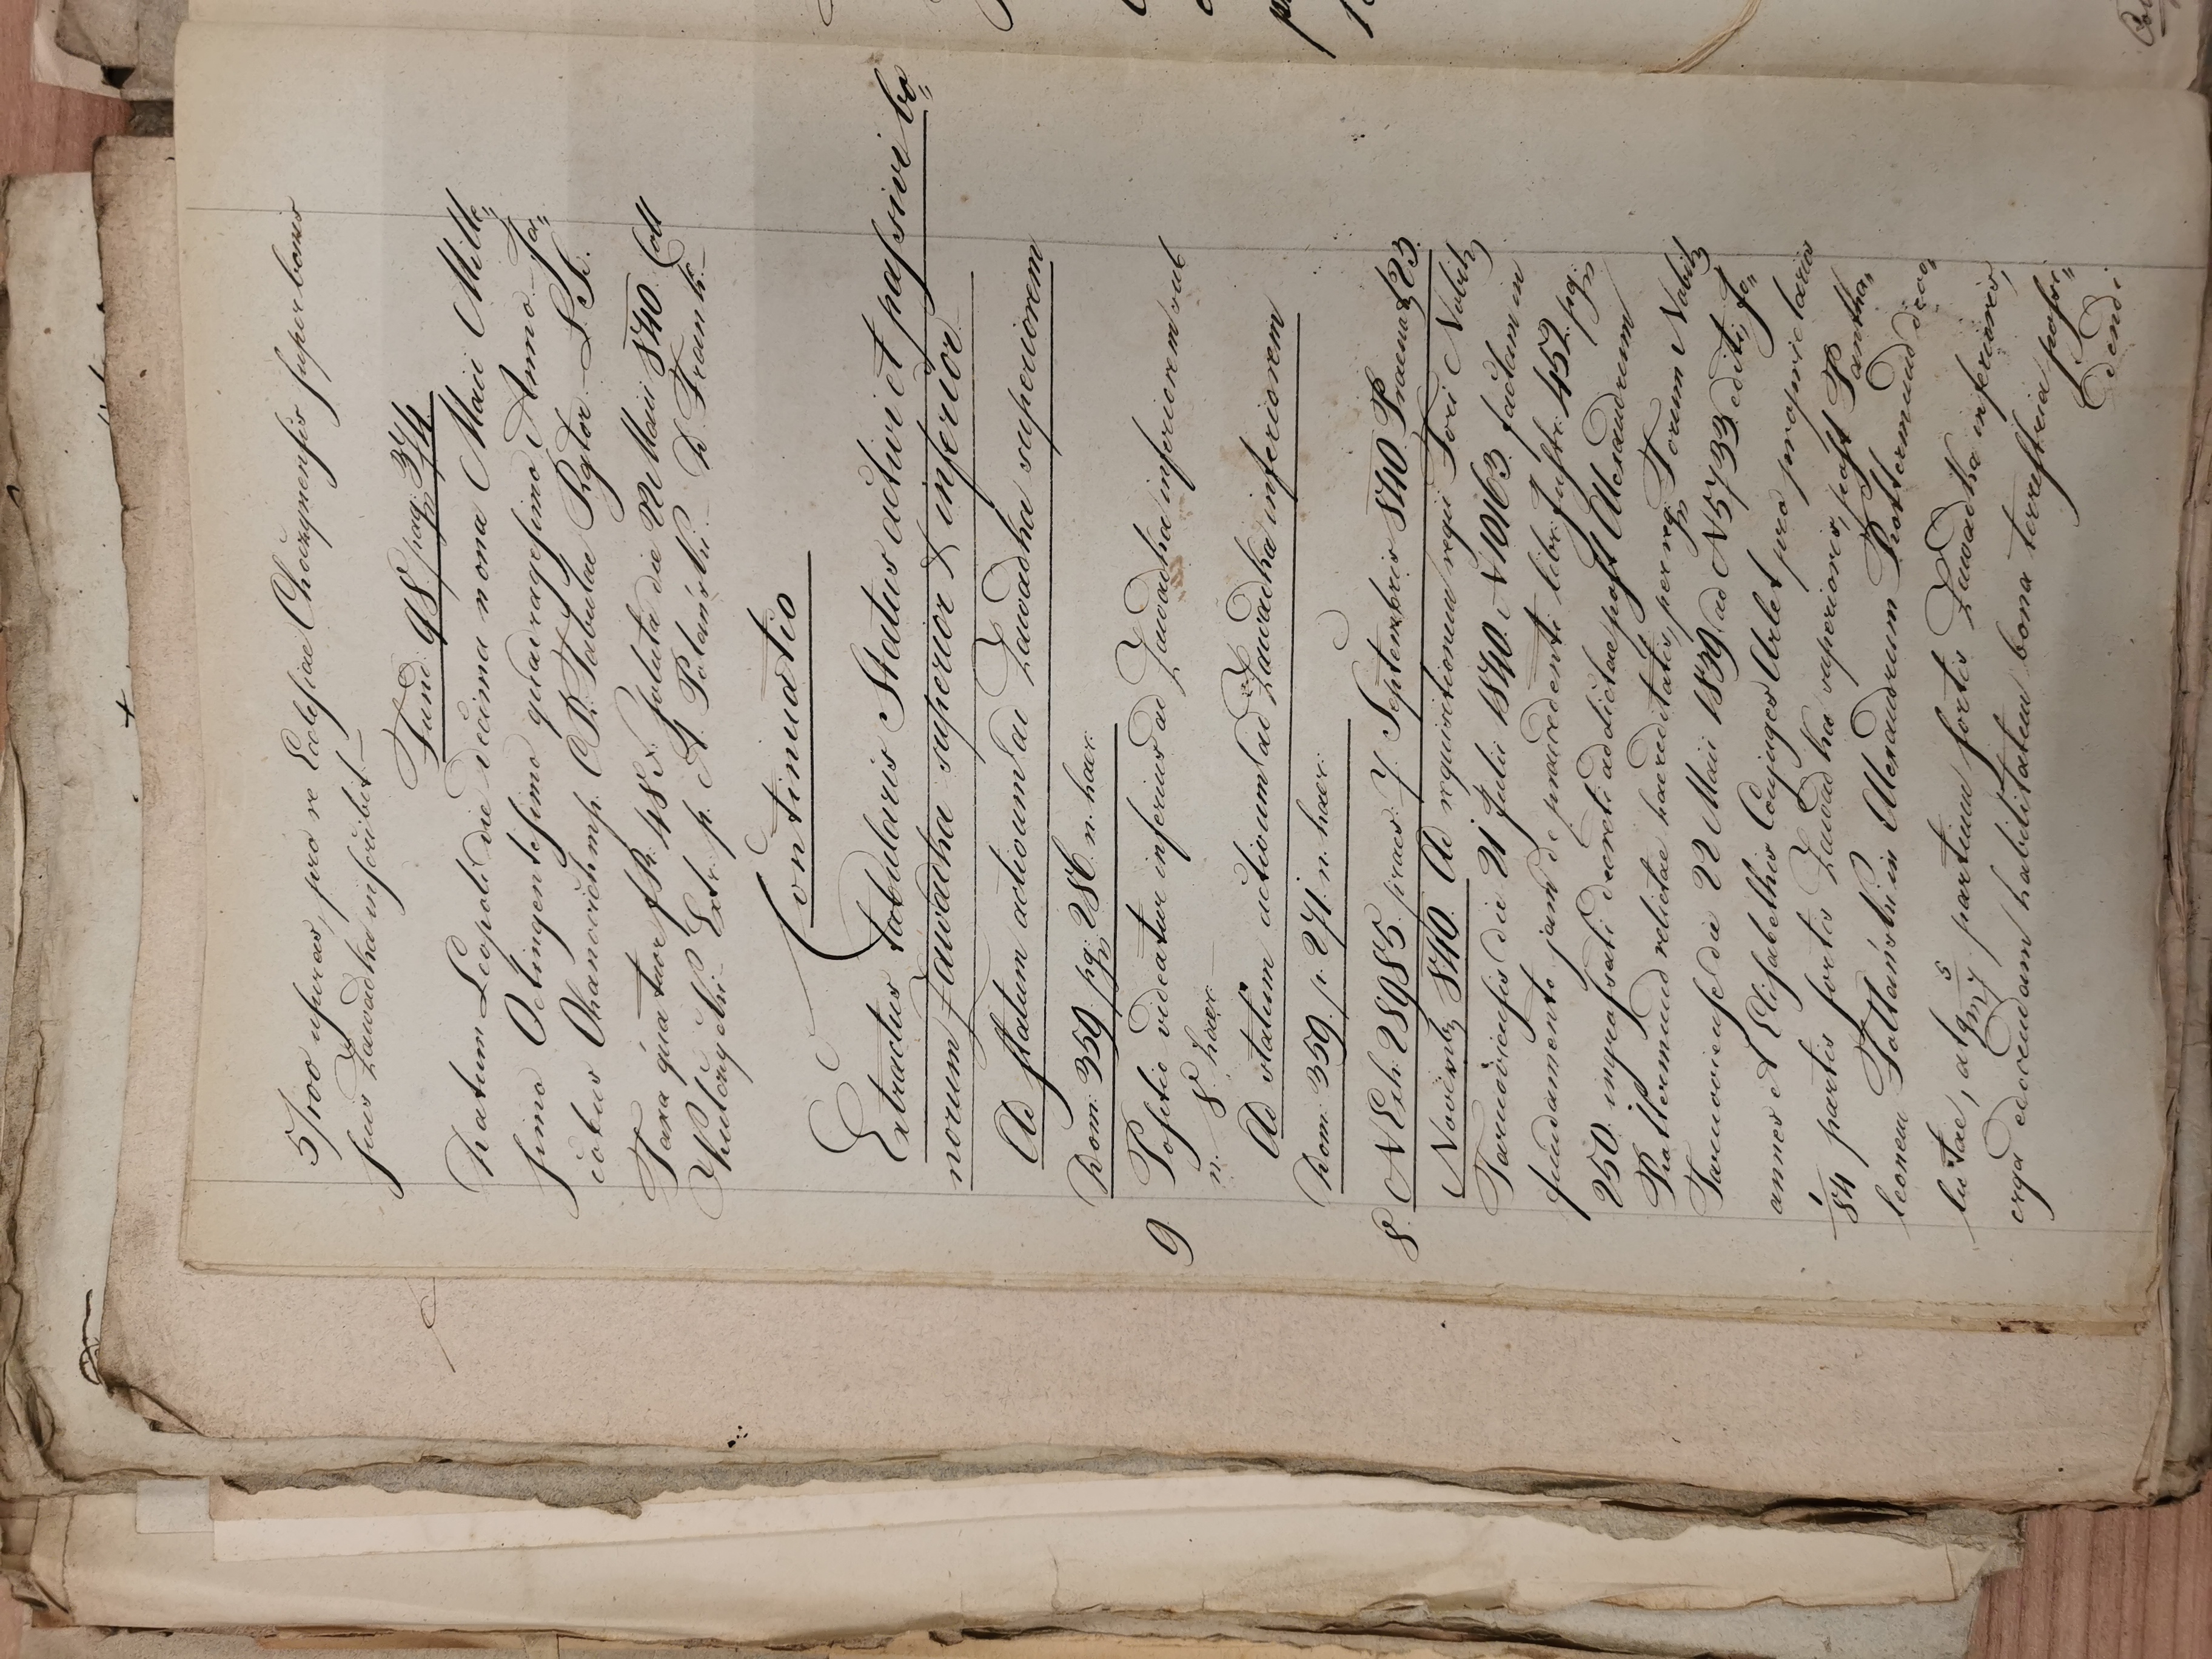 5/100 usuras, pro re Ecclesiae Choragnensis super bonis
suis Zawadka inscribit.
Fund. 98. pag. 374.
Datum Leopoli die decima nona Maii Mille„
simo Octingentesimo quadragesimo Anno. Ja„
cobus Ohanowich mp. C. R. Tabulae Rgstor L. S.
Taxa quatuor fR. 48 xr. soluta die 22 Maii 840. Coll
Extr. p. A. Polański. D. Frank.
Continuatio
Extractus tabularis Status activi et passivi bo„
norum Zawadka superior & inferior
Ad statum activum ad Zawadka superiorem
Dom: 359. pag. 286. n. haer.
9 Positio videatur inferius ad Zawadka inferiorem sub
n. 8. haer.
Ad statum activum ad Zawadka inferiorem
Dom: 359. p. 271. n. haer.
8. N Exh. 28985. praes. 7 Septembris 840. Praenot. 23.
Novembr. 840. Ad requisitionem regii Fori Nobil.
Tarnoviensis die 21 Julii 1840. N 10163. factam in
fundamento jam de praecedenti libr. Instr. 452. pag.
250. ingrossati decreti addictae post Alexandrum
relictae haereditatis, per reg. Forum Nobil.
Tarnoviense die 22 Maii 1839 ad N 5733 editi, Jo„
annes & Elisabetha Conjuges Arlet pro proprietariis
1/84 partis sortis Zawadka superioris, post Pantha„
leonem Poltański in Alexandrum devo„
lutae, atq. 5/7 partium sortis Zawadka inferioris,
erga edocendam habilitatem bona terrestria possi„
dendi